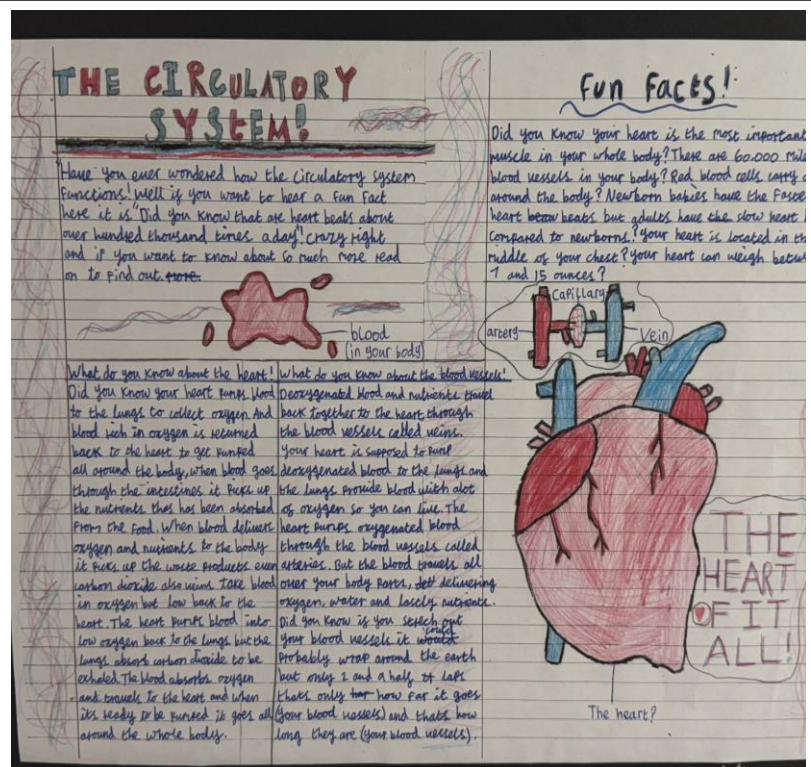 THE CIRCULATORY
SYSTEM!
"Have you ever wondered how the circulatory system
functions! Well if you want to hear a fun fact
here it is "Did you know that are heart beats about
over hundred thousand times a day". crazy right
and if you want to know about so much more read
on to find out. more.
blood
(in your body)
What do you know about the heart!
Did you know your heart pumps blood
to the lungs to collect oxygen. And
blood rich in oxygen is returned
back to the heart to get pumped
all around the body, when blood goes
through the intestines it picks up
the nutrients thas has been absorbed
from the food. When blood delivers
oxygen and nutrients to the body
it picks up the waste products even
carbon dioxide also veins take blood
in oxygen but low back to the
heart. The heart pumps blood into
low oxygen back to the lungs but the
lungs absorb carbon dioxide to be
exhaled. The blood absorbs oxygen
and travels to the heart and when
its ready to be pumped it goes all
around the whole body.
What do you know about the blood vessels!
Deoxygenated blood and nutrients travel
back together to the heart through
the blood vessels called veins.
Your heart is supposed to pump
deoxygenated blood to the lungs and
the lungs provide blood with alot
of oxygen so you can live. The
heart pumps oxygenated blood
through the blood vessels called
arteries. But the blood travels all
over your body parts, delivering
oxygen, water and lasely nutrients.
Did you know is you strech out
your blood vessels it could
probably wrap around the earth
but only 2 and a half of laps
thats only how far it goes
(your blood vessels) and thats how
long they are (your blood vessels).
Fun Facts!
Did you know your heart is the most important
muscle in your whole body? There are 60.000
blood vessels in your body? Red blood cells carry
around the body? Newborn babies have the
heart beats but adults have the slow heart
compared to newborns? your heart is located in
middle of your chest? your heart can weigh
7 and 15 ounces?
capillary
artery
Vein
THE
HEART
OF IT
ALL!
The heart?